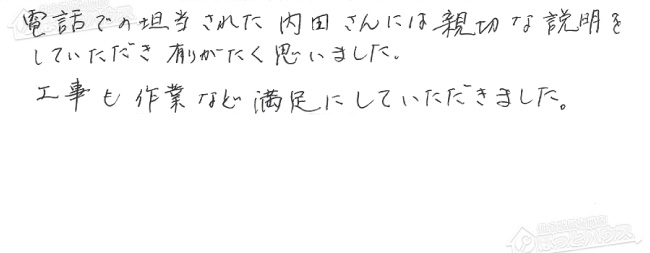 電話での担当された内田さんには親切な説明を
していただき有りがたく思いました。
工事も作業など満足にしていただきました。